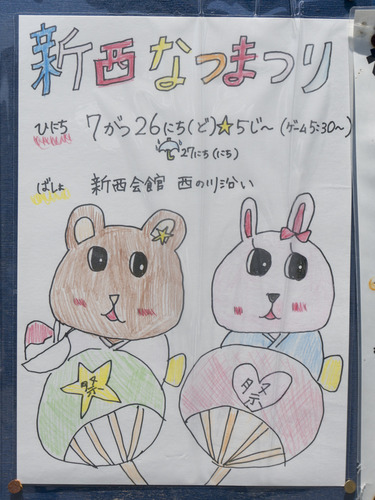 新西なつまつり
ひにち 7がつ26にち(ど)☆5じ〜(ゲーム5:30〜)
27にち(にち)
ばしょ 新西会館 西の川沿い
祭
祭